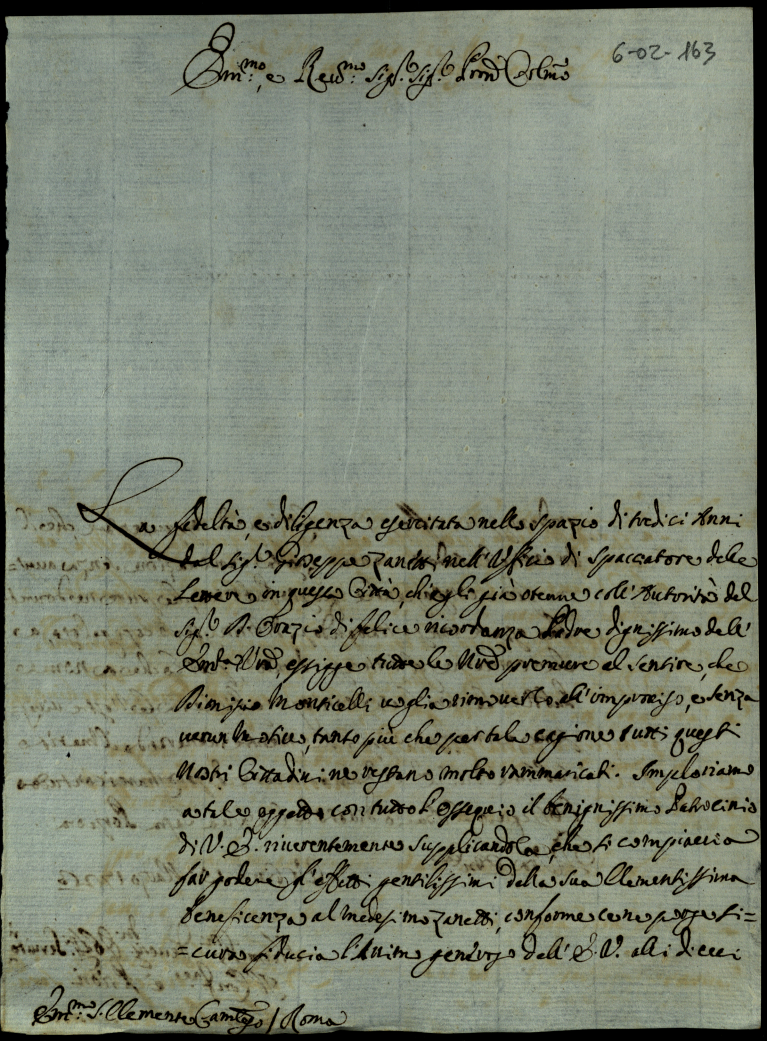 6-02-163
Em.mo, e Reud.mo Sig.r Sig.r Pron Colmo
La fedeltà, e diligenza esercitata nello spazio di tredici Anni
dal Sig.r Giuseppe Zanetti nell'Uffizio di Spaccatore delle
Lettere in questa Città, ch'egli già otenne coll'Autorità del
Sig.r D. Orazio di felice ricordanza Padre dignissimo dell'
Em.a Vra, essigge tutte le Nre premure al sentire, che
Dionisio Monticelli voglia rimoverlo all'improviso, e senza
verun Motivo, tanto più che per tale cagione tutti questi
Nostri Cittadini ne restano molto rammaricati. Imploriamo
a tale oggetto con tutto l'ossequio il benignissimo Patrocinio
di V. E. riverentemente supplicandola, che si compiaccia
far godere gl'effetti gentilissimi della sua Clementissima
beneficenza al Medesimo Zanetti, conforme ce ne porge si=
=cura fiducia l'Animo generoso dell'E. V. alli di cui
Em.mo S. Clemente / Roma